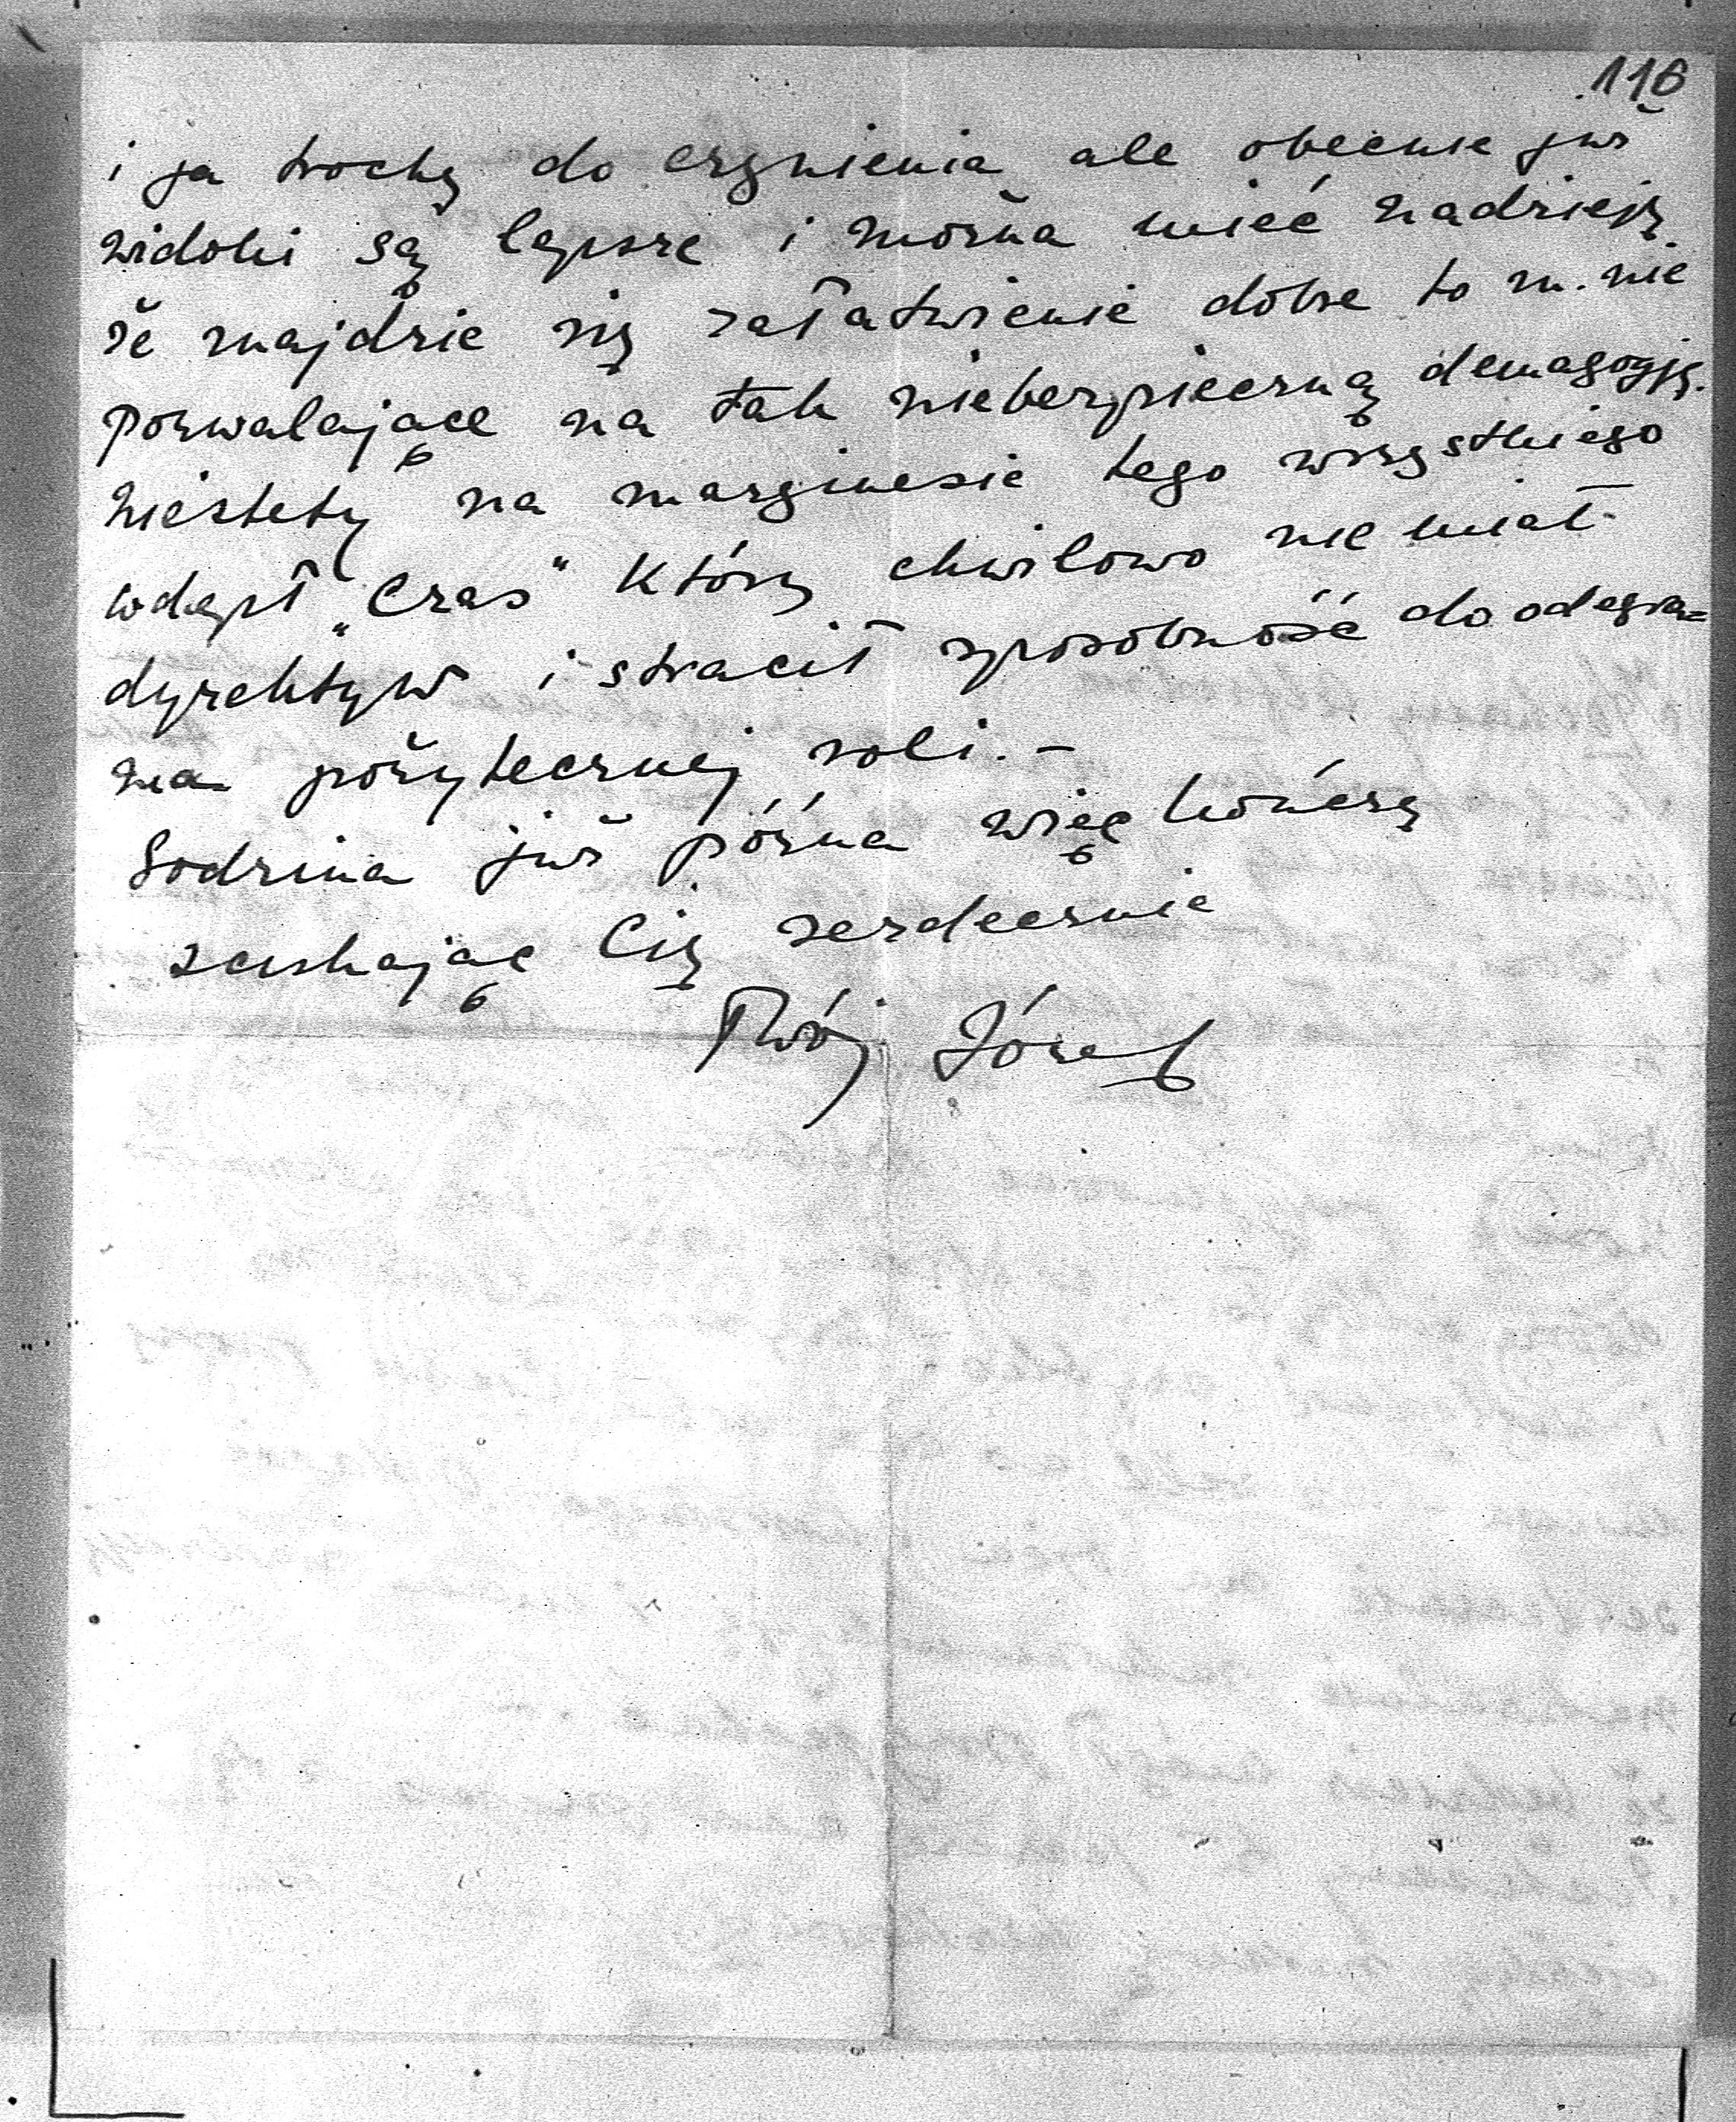 116
i ja trochę do czynienia ale obecnie już
widoki są lepsze i można mieć nadzieję
że znajdzie się załatwienie dobre to zn. nie
pozwalające na tak niebezpieczną demagogję.
Niestety na marginesie tego wszystkiego
wdepł „Czas" który chwilowo nie miał
dyrektyw i stracił sposobność do odegra=
nia pożytecznej roli. –
Godzina już późna więc kończę
sciskając Cię serdecznie
Twój Józef